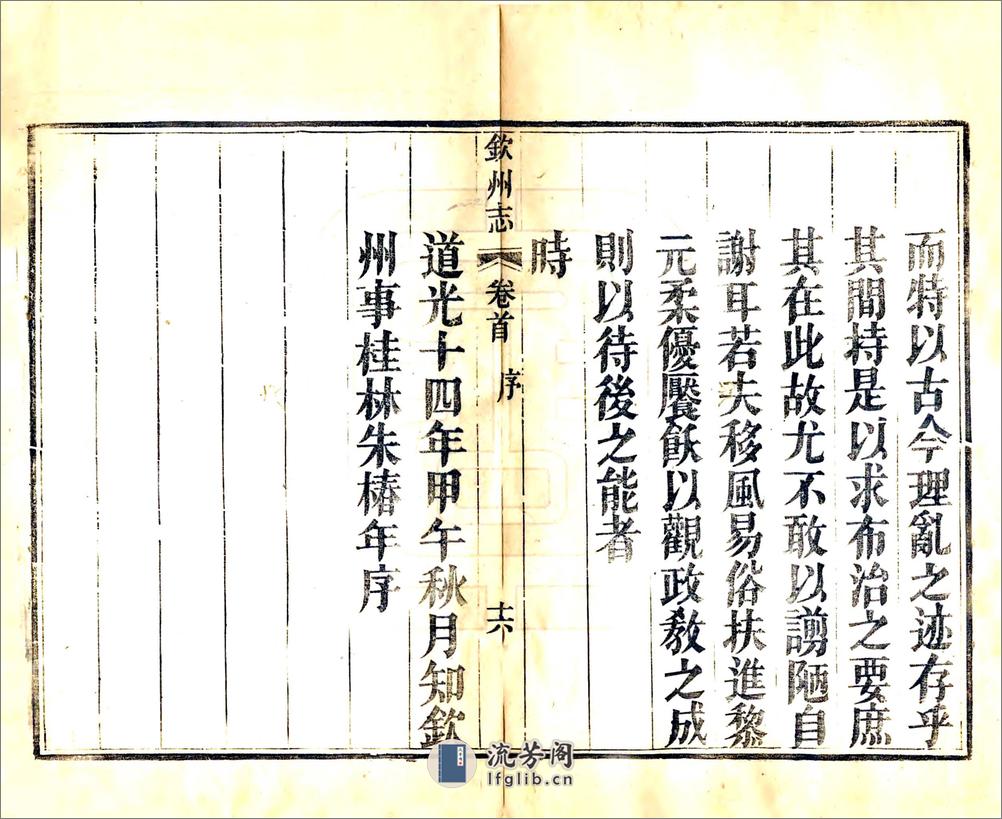 而特以古今理亂之迹存乎
其間持是以求布治之要庶
其在此故尤不敢以謭陋自
謝耳若夫移風易俗扶進黎
元柔優饜飫以觀政敎之成
則以待後之能者
時
欽州志 卷首 序 十六
道光十四年甲午秋月知欽
州事桂林朱椿年序
流芳阁
lfglib.cn